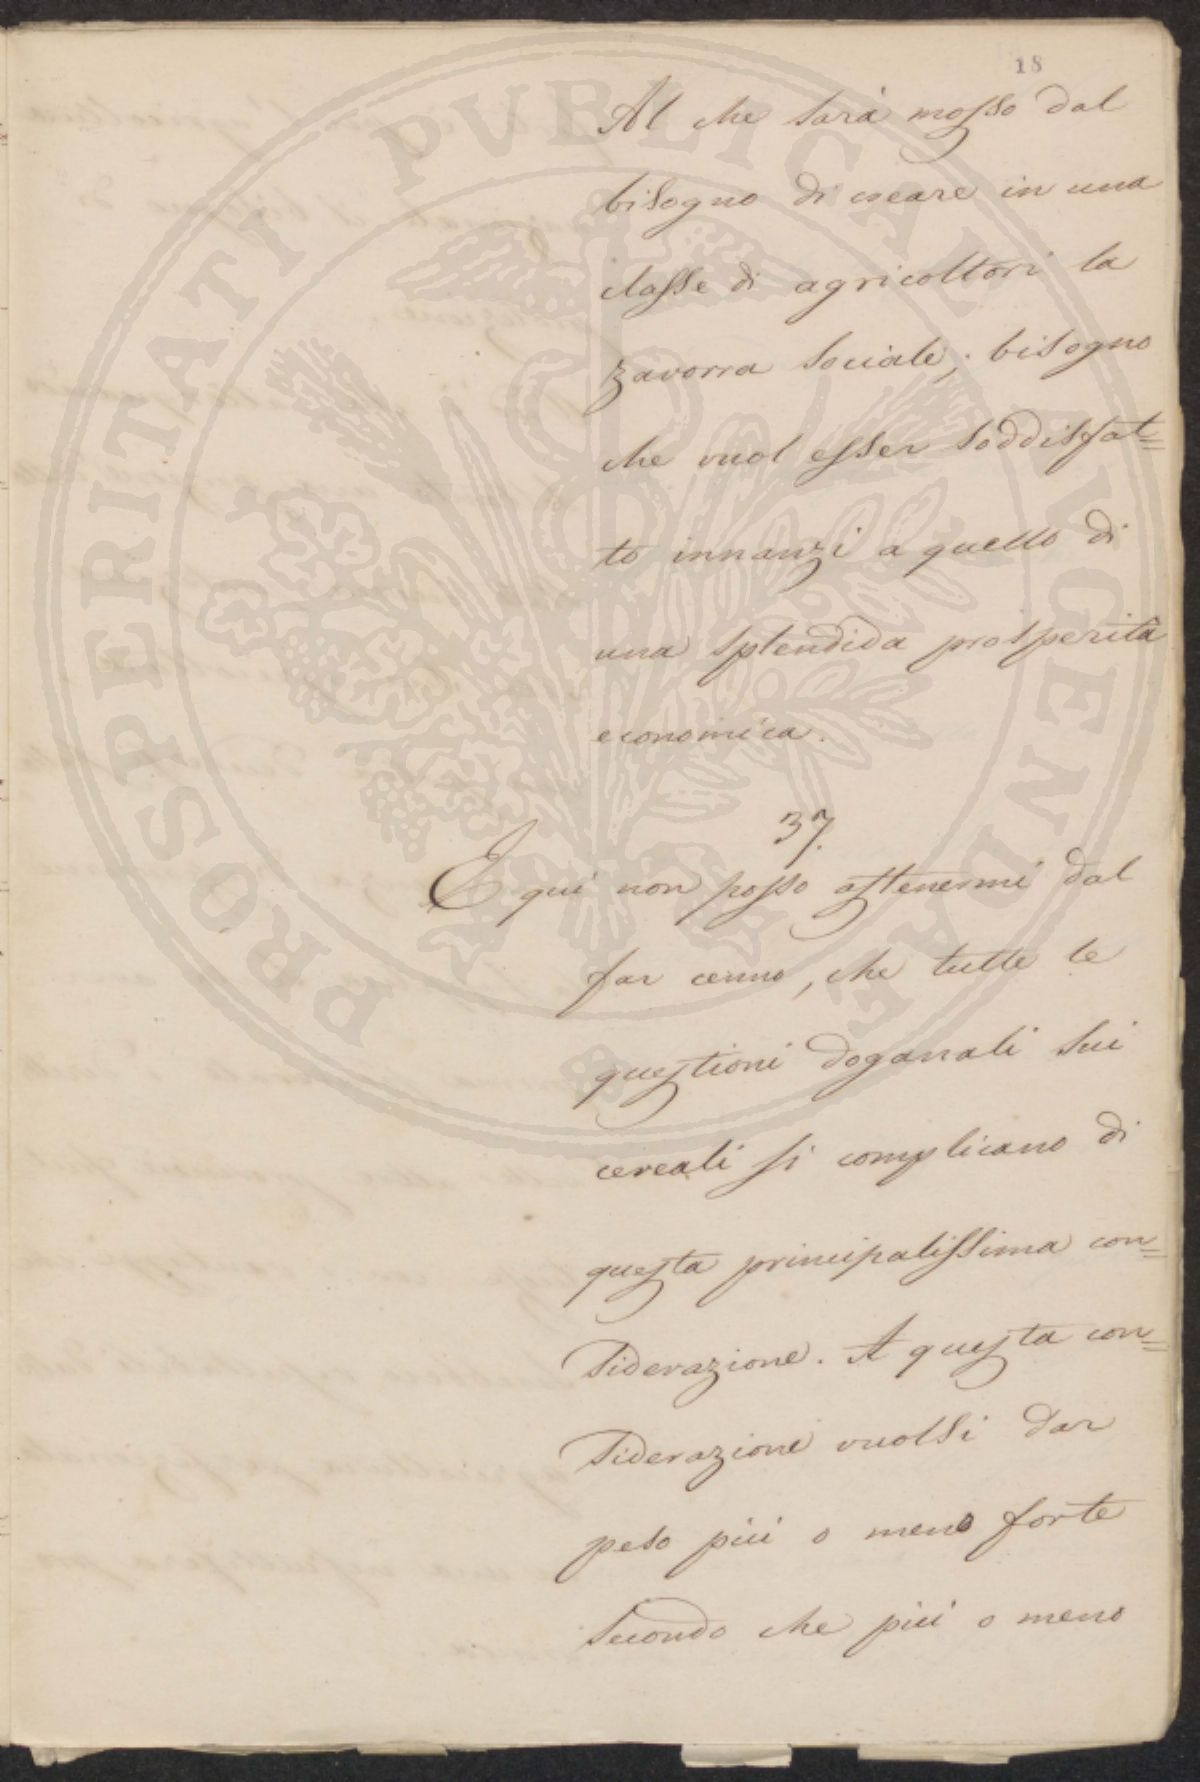 18
Al che sarà mosso dal
bisogno di creare in una
classe di agricoltori la
zavorra sociale; bisogno
che vuol esser soddisfat=
to innanzi a quello di
una splendida prosperità
economica.
37.
E qui non posso astenermi dal
far cenno, che tutte le
questioni doganali sui
cereali si complicano di
questa principalissima con=
siderazione. A questa con=
siderazione vuolsi dar
peso più o meno forte
secondo che più o meno
PROSPERITATI PVBLICAE AVGENDAE